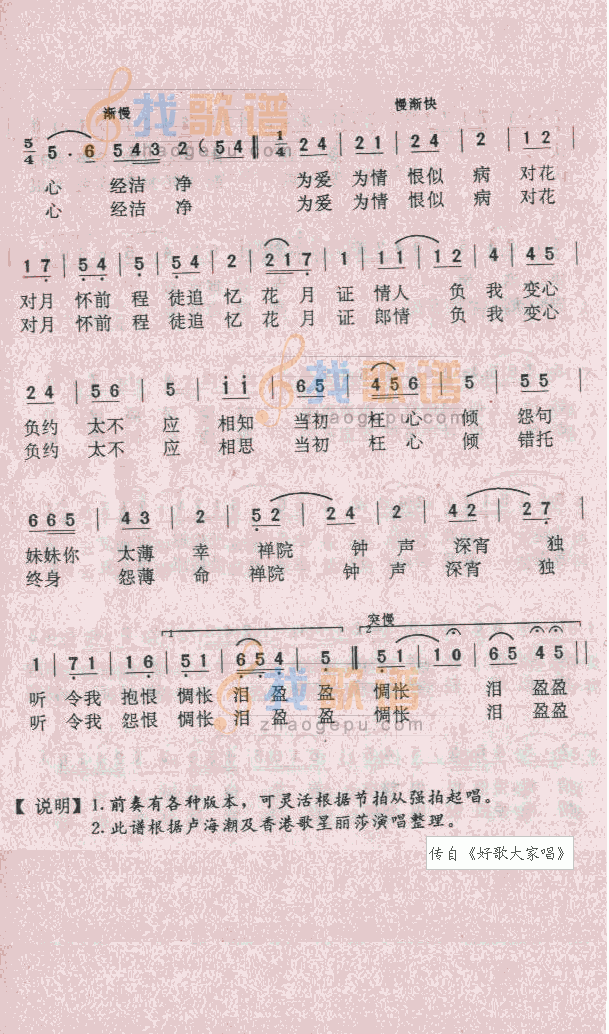 找歌谱
zhaogepu.com
渐慢 慢渐快
5/4 5 · 6 5 4 3 2 ( 5 4 ‖ 1/4 2 4 | 2 1 | 2 4 | 2 | 1 2 |
心 经洁 净 为爱 为情 恨似 病 对花
心 经洁 净 为爱 为情 恨似 病 对花
1 7 | 5 4 | 5 | 5 4 | 2 | 2 1 7 | 1 | 1 1 | 1 2 | 4 | 4 5 |
对月 怀前 程 徒追 忆 花 月 证 情人 负 我 变心
对月 怀前 程 徒追 忆 花 月 证 郎情 负 我 变心
找歌谱
zhaogepu.com
2 4 | 5 6 | 5 | i i | 6 5 | 4 5 6 | 5 | 5 5 |
负约 太不 应 相知 当初 枉 心 倾 怨句
负约 太不 应 相思 当初 枉 心 倾 错托
6 6 5 | 4 3 | 2 | 5 2 | 2 4 | 2 | 4 2 | 2 7 |
妹妹你 太薄 幸 禅院 钟 声 深宵 独
终身 怨薄 命 禅院 钟 声 深宵 独
1 2 突慢
1 | 7 1 | 1 6 | 5 1 | 6 5 4 | 5 ‖ 5 1 | 1 0 | 6 5 4 5 ‖
听 令我 抱恨 惆怅 泪 盈 盈 惆怅 泪 盈盈
听 令我 怨恨 惆怅 泪 盈 盈 惆怅 泪 盈盈
找歌谱
zhaogepu.com
【 说明】 1. 前奏有各种版本，可灵活根据节拍从强拍起唱。
2. 此谱根据卢海潮及香港歌星丽莎演唱整理。
传自《好歌大家唱》